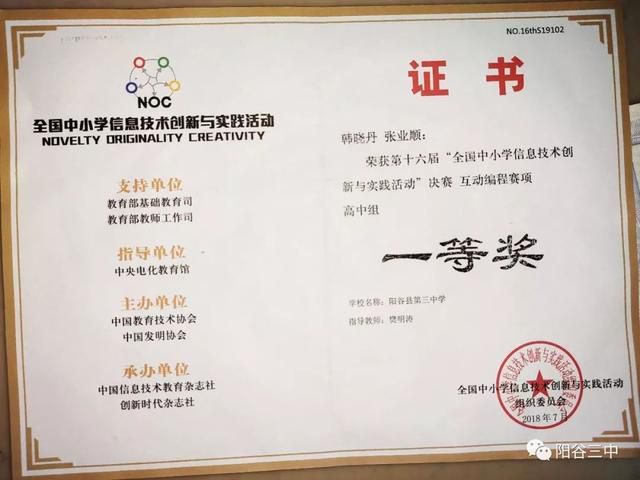 NO.16thS19102
NOC
全国中小学信息技术创新与实践活动
NOVELTY ORIGINALITY CREATIVITY
支持单位
教育部基础教育司
教育部教师工作司
指导单位
中央电化教育馆
主办单位
中国教育技术协会
中国发明协会
承办单位
中国信息技术教育杂志社
创新时代杂志社
证书
韩晓丹 张业顺：
荣获第十六届“全国中小学信息技术创
新与实践活动”决赛 互动编程赛项
高中组
一等奖
学校名称：阳谷县第三中学
指导教师：樊明涛
全国中小学信息技术创新与实践活动
组织委员会
2018年7月
阳谷三中